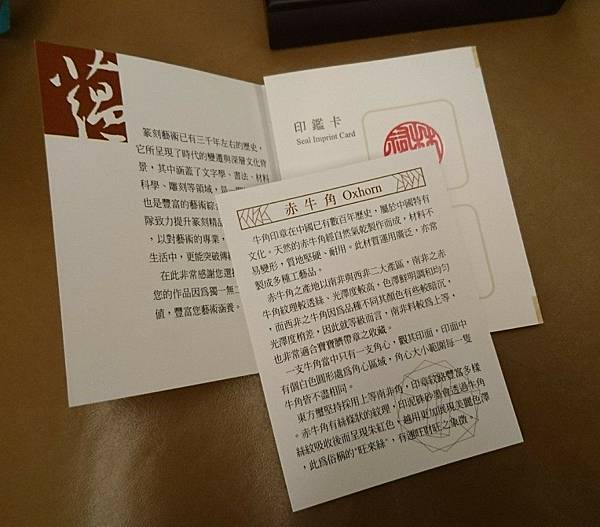 篆刻藝術已有三千年左右的歷史，
它所呈現了時代的變遷與深層文化背
景，其中涵蓋了文字學、書法、材料
科學、雕刻等領域，是一
也是豐富的藝術綜
隊致力提升篆刻精品
，以對藝術的專業，
生活中，更能突破傳
在此非常感謝您選
您的作品因為獨一無二
值，豐富您藝術涵養。
印鑑卡
Seal Imprint Card
赤牛角 Oxhorn
牛角印章在中國已有數百年歷史，屬於中國特有
文化。天然的赤牛角經自然氣乾製作而成，材料不
易變形，質地堅硬、耐用。此材質運用廣泛，亦常
製成多種工藝品。
赤牛角之產地以南非與西非二大產區，南非之赤
牛角紋理較透絲、光澤度較高，色澤鮮明調和均勻
，而西非之牛角因為品種不同其顏色有些較暗沉，
光澤度稍差，因此就等級而言，南非料較為上等，
也非常適合寶寶臍帶章之收藏。
一支牛角當中只有一支角心，觀其印面，印面中
有個白色圓形處為角心區域，角心大小範圍每一隻
牛角皆不盡相同。
東方璽堅持採用上等南非角，印章紋路豐富多樣
。赤牛角有絲條狀的紋理，印泥硃砂墨會透過牛角
絲紋吸收後而呈現朱紅色，越用更加展現美麗色澤
，此為俗稱的"旺來絲"，有運旺財旺之象徵。